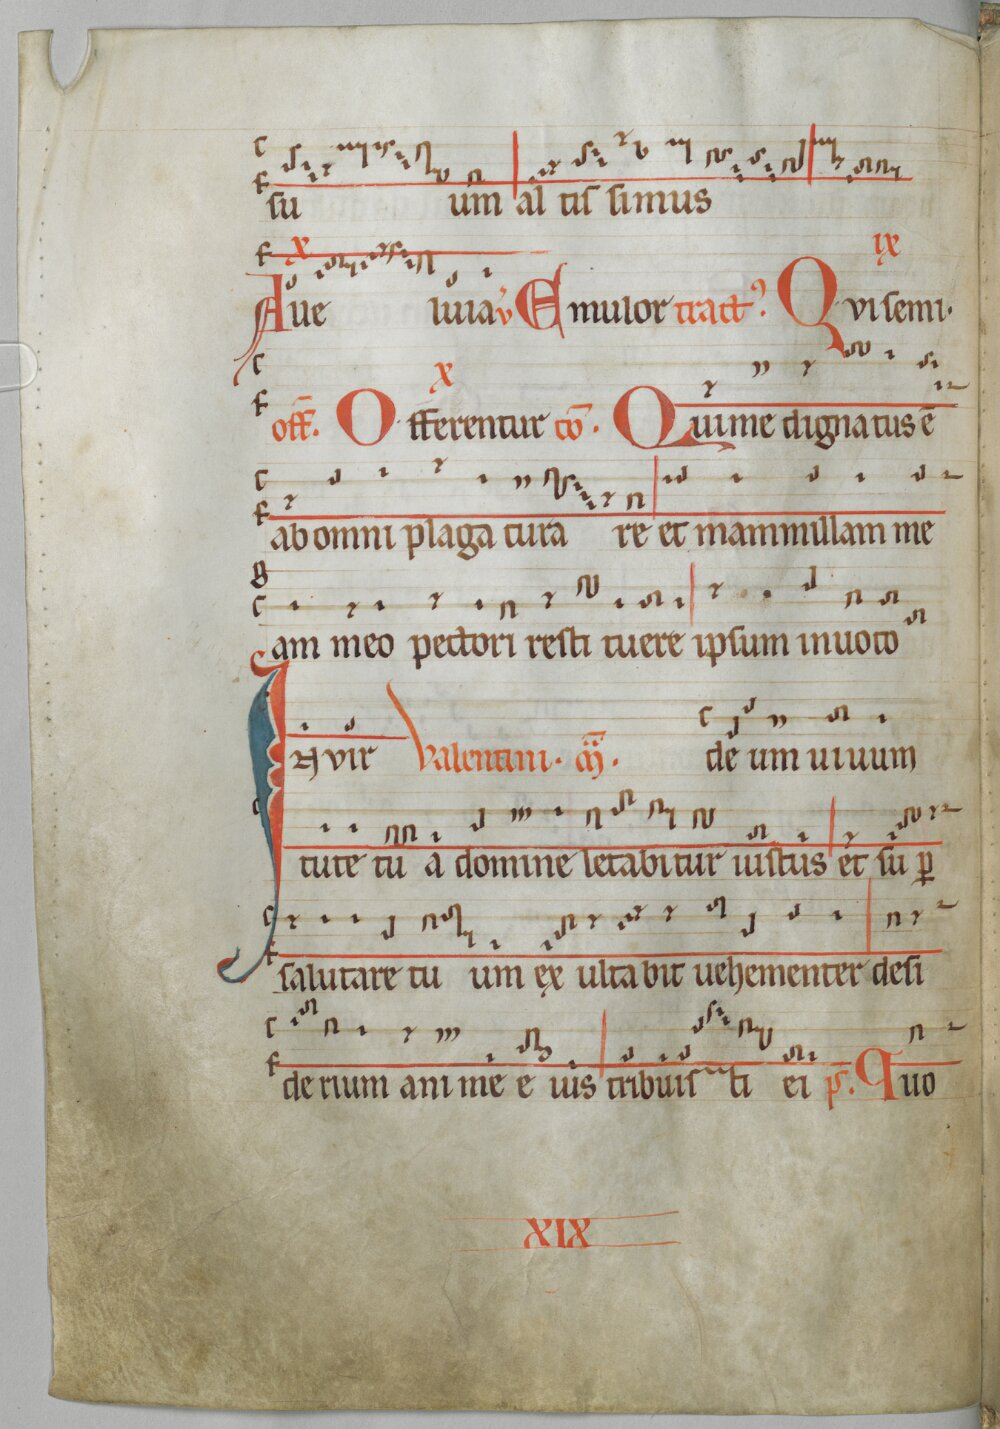 su um al tis simus
x ix
Aue luiav Emulor tract⁹. Qui semi.
x
off. Offerentur co. Qui me dignatus ē
ab omni plaga cura re et mammillam me
am meo pectori resti tuere ipsum inuoco
deum uiuum
In vir Valentini.
tute tu a domine letabitur iustus et su ꝑ
salutare tu um ex ultabit uehementer desi
derium anime e ius tribuisti ei ps. Quo
XIX